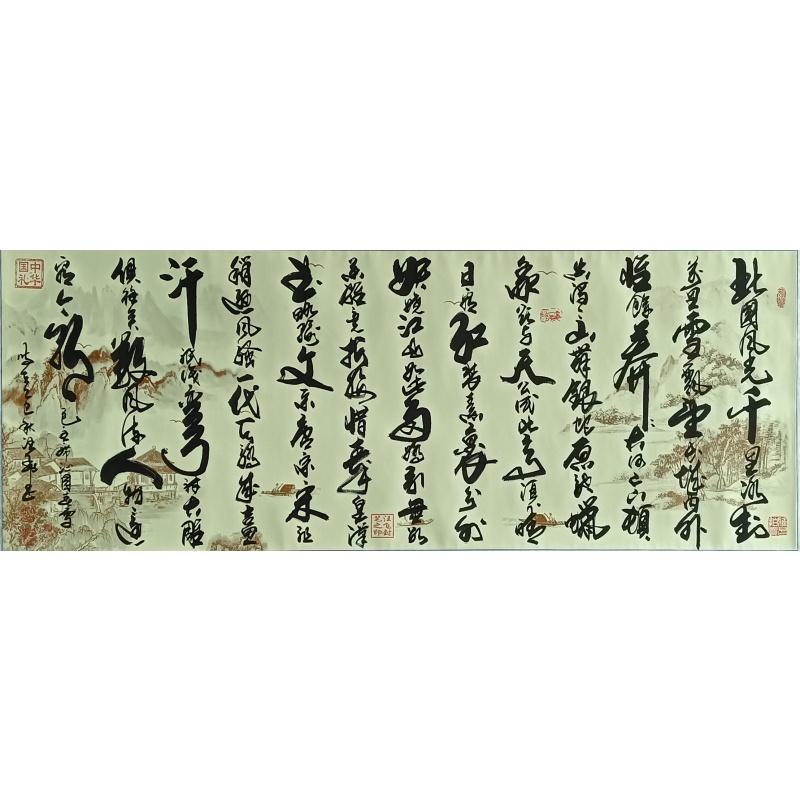 北國风光千里冰封
万里雪飘望长城内外
惟餘莽莽大河上下顿
失滔滔山舞银蛇原驰蜡
象欲与天公试比高须晴
日看红装素裹分外
妖娆江山如此多娇引無数
英雄竞折腰惜秦皇汉
武略输文采唐宗宋祖
稍逊风骚一代天骄成吉思
汗只识弯弓射大雕
俱往矣数风流人物还
看今朝毛主席沁園春雪
乙巳秋
中华国礼